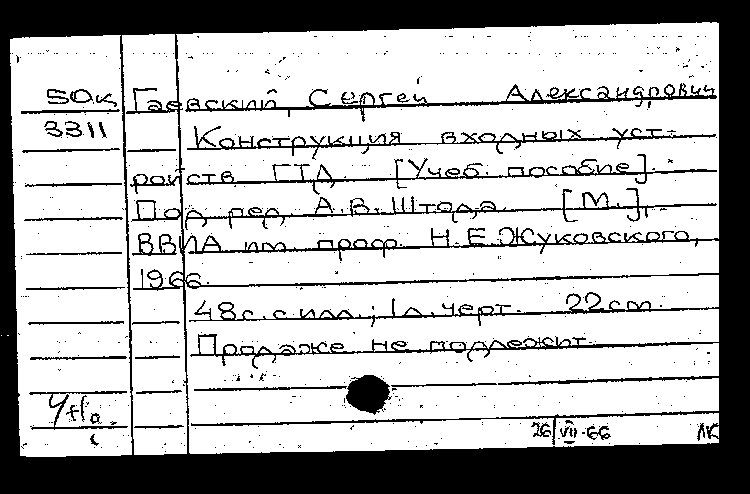 50к Гаевский, Сергей Александрович
3311 Конструкция входных уст-
ройств ГТД. [Учеб. пособие].
Под ред. А.В. Штода. [М.],
ВВИА им. проф. Н.Е.Жуковского,
1966.
48с. с илл.; 1л. черт. 22см.
Продаже не подлежит
26/VII-66 ЛК